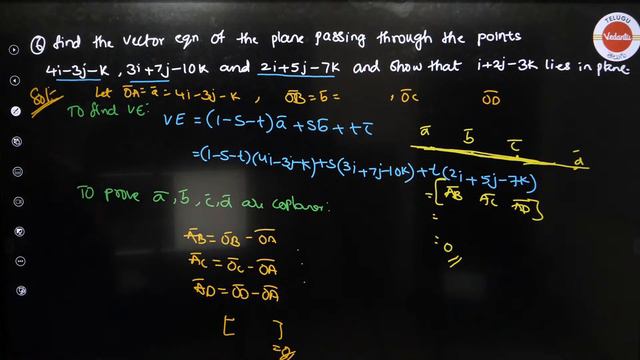 ⑥ find the vector eqn of the plane passing through the points
4i-3j-k, 3i+7j-10k and 2i+5j-7k and show that i+2j-3k lies in plane.
Sol:- Let OA = a = 4i-3j-k, OB = b = , OC OD
To find VE:
VE = (1-s-t)a + sb + tc
= (1-s-t)(4i-3j-k)+s(3i+7j-10k)+t(2i+5j-7k)
a b c d
= [AB AC AD]
=
= 0
To prove a, b, c, d are coplanar:
AB = OB - OA
AC = OC - OA
AD = OD - OA
[ ]
= 0
TELUGU
Vedantu